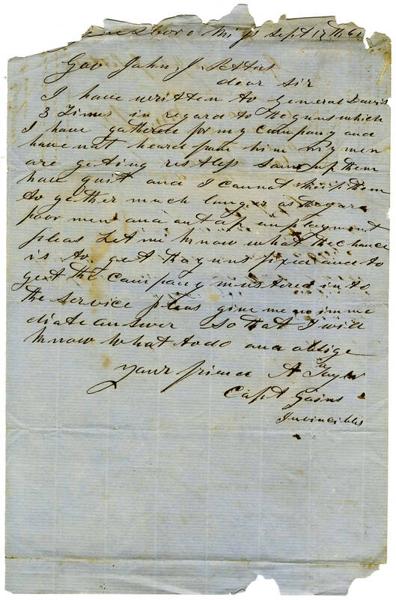 Missi Sept 17th 61
Gov John J. Pettus
dear Sir
I have written to General Davis
3 times in regard to the guns which
I have gathered for my company and
have not heard from him my men
are geting restless Some of them
have quit and I cannot them
to gether much longer as they are
poor men and out of imployment
pleas let me know what the chance
is to get the guns fixed and to
get the company mustered in to
the service pleas give me an imme
diate answer so that I will
know what to do and oblige
your friend A Taylor
Capt Gains
Invincibles